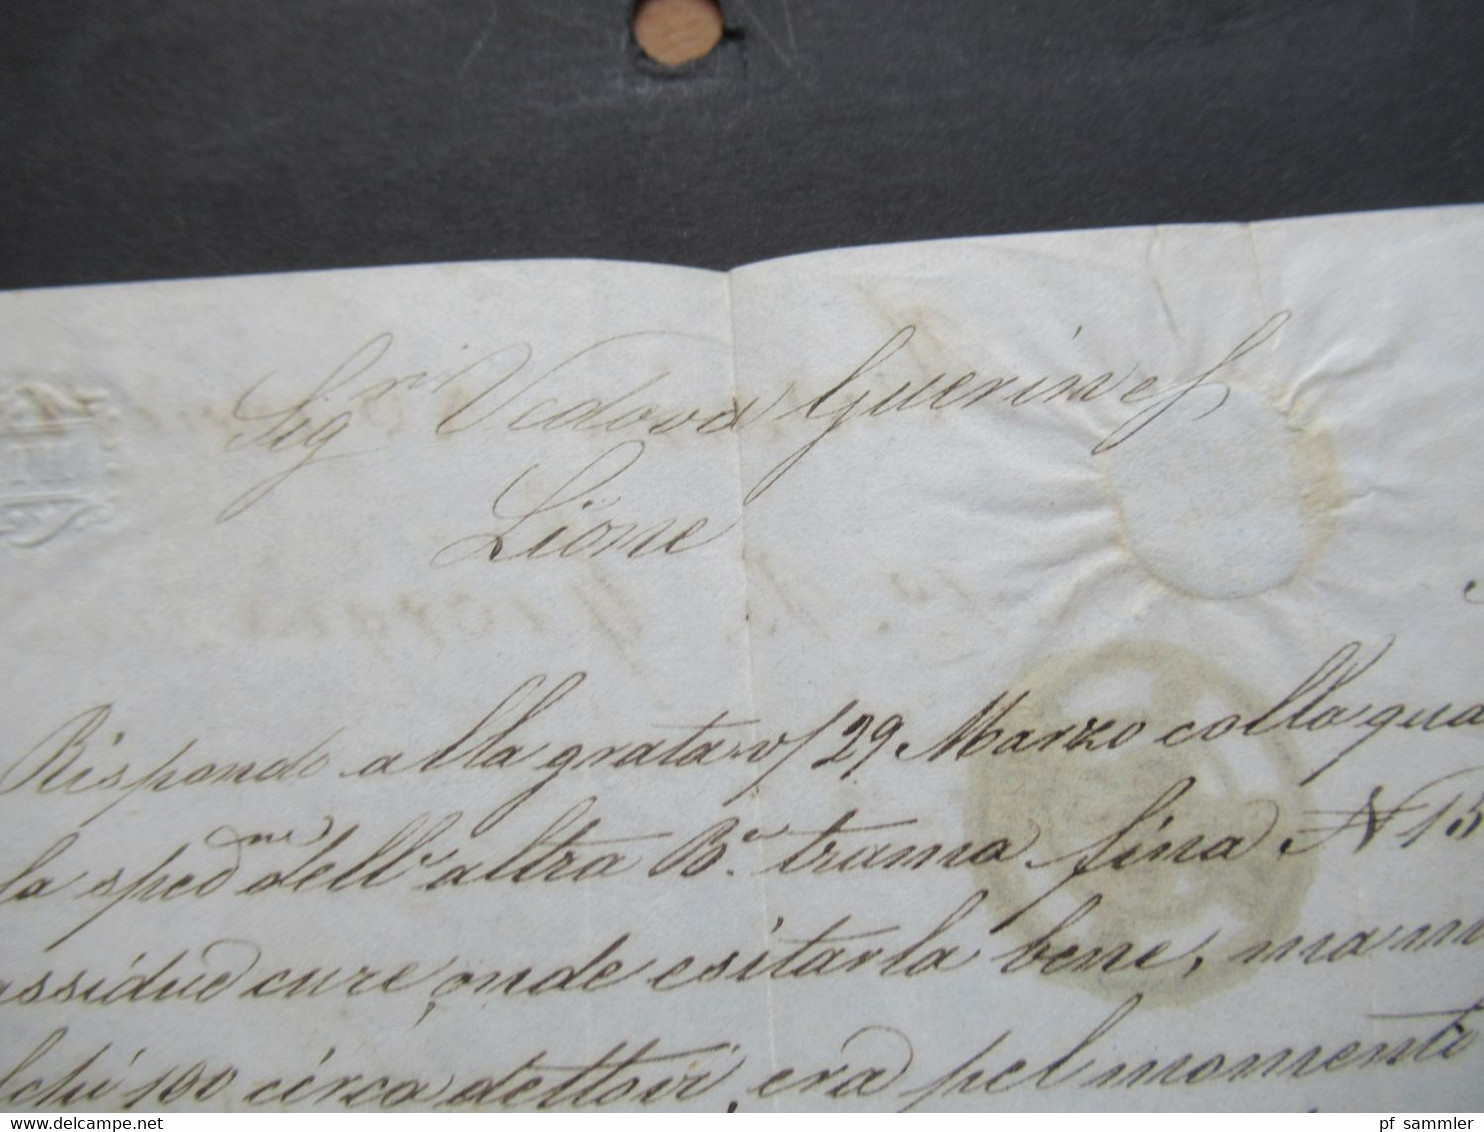 Sig.ri Vedova Guerin e f
Lione
Rispondo alla grata v/ 29 Marzo colla qua
la sped.ne dell'altra B.a trama fina N 13
assidue cure, onde esitarla bene, ma mi
100 circa dettovi, era pel momento
www.delcampe.net
pf_sammler